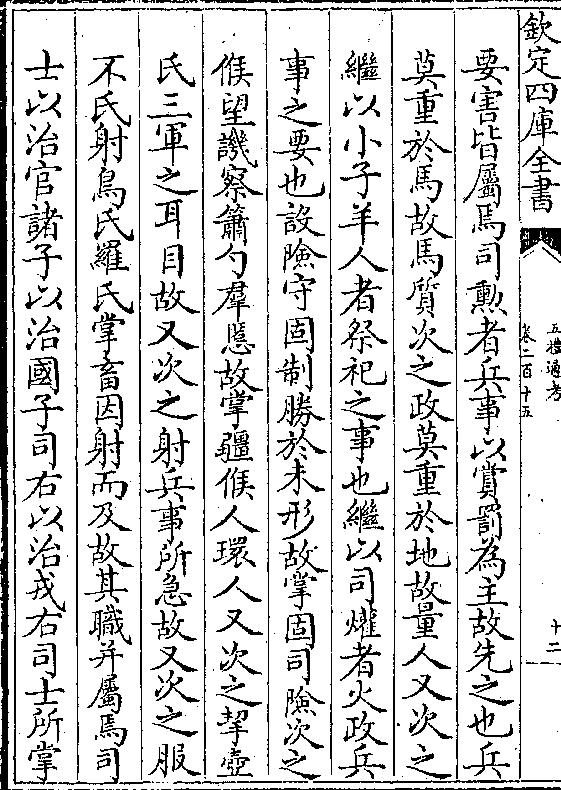 欽定四庫全書
五禮通考
卷二百十五
十二
要害皆屬焉司勲者兵事以賞罰為主故先之也兵
莫重於馬故馬質次之政莫重於地故量人又次之
繼以小子羊人者祭祀之事也繼以司爟者火政兵
事之要也設險守固制勝於未形故掌固司險次之
候望譏察籥勺羣慝故掌疆候人環人又次之挈壺
氏三軍之耳目故又次之射兵事所急故又次之服
不氏射鳥氏羅氏掌畜因射而及故其職并屬焉司
士以治官諸子以治國子司右以治戎右司士所掌